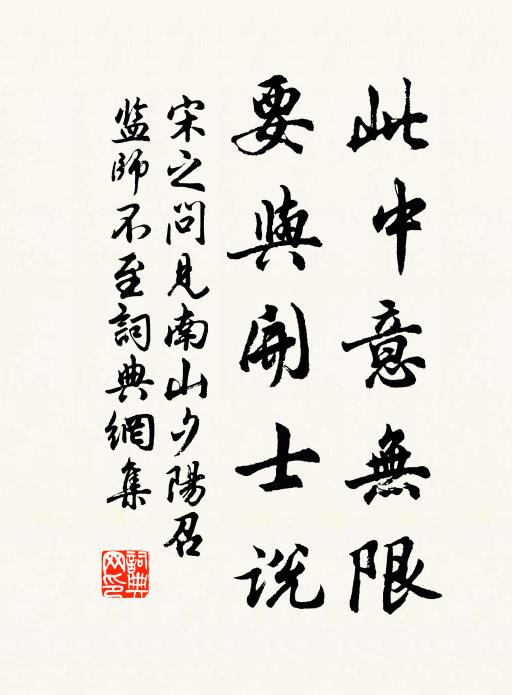 此中意無限
要與開士説
宋之問見南山夕陽召
監師不至詞典網集
詞典
网印